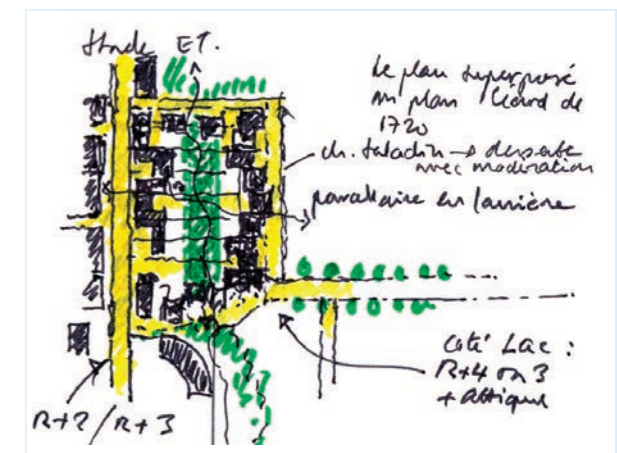 Stade ET.
Le plan superposé
au plan de
1720
ch. Saladin → desserte
avec modération
parcellaire en lanière
Côté Lac :
R+4 ou 3
+ attique
R+2 / R+3